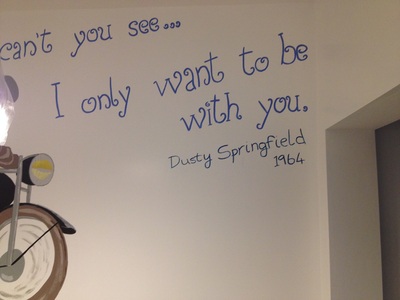 can't you see...
I only want to be
with you.
Dusty Springfield
1964